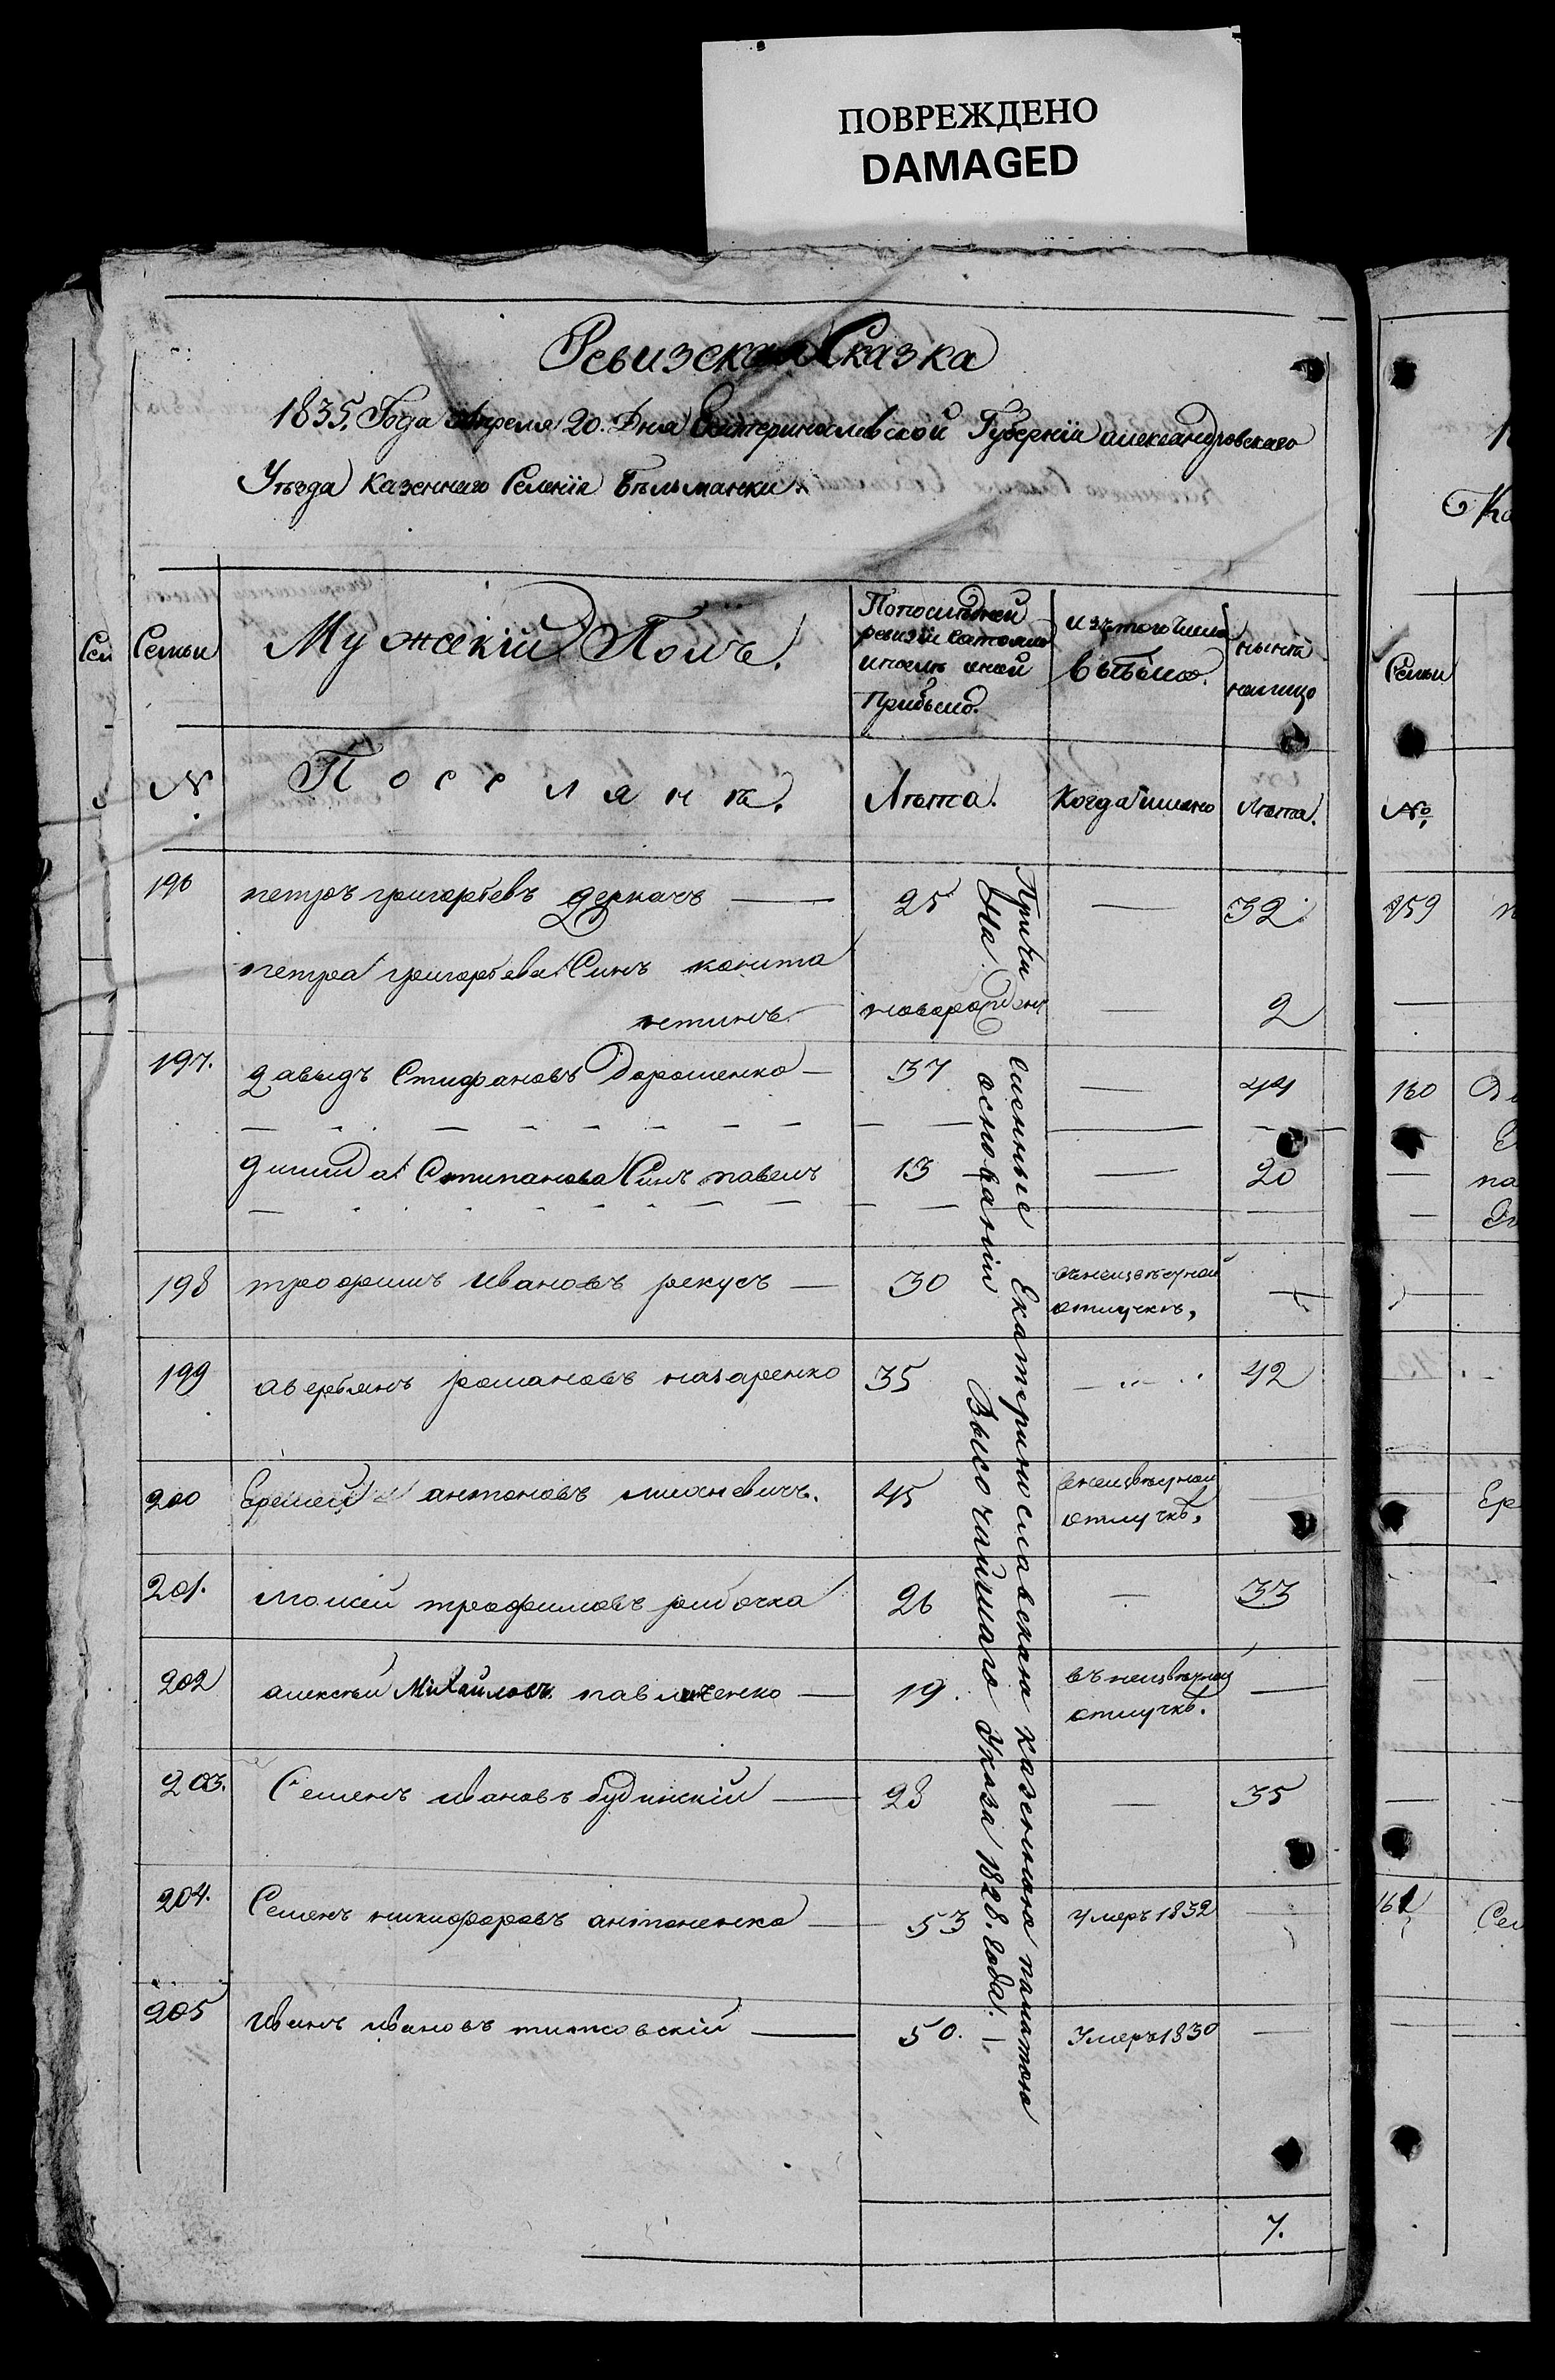 ПОВРЕЖДЕНО
DAMAGED
Ревизская Сказка
1835. Года апреля 20. Дня Екатеринославской Губернїи александровскаго
Уѣзда Казеннаго Селенїя Бѣльманки.
Семьи
Мужескїй Полъ.
По последней
ревизїи состояло
и после оной
прибыло.
изъ того числа
выбыло.
нынѣ
налицо
№
Поселянъ.
Лѣта.
Когда имянно
Лѣта.
196 петръ григорьевъ деркачъ — 25 — 32.
петра григорьева Синъ конста
нтинъ новорожден — 2
197. давыдъ Стифановъ Дорошенко — 37 — 44
Стипанова Синъ павелъ 13 — 20
198 трофимъ ивановъ рекусъ — 30 въ неизвѣстной
отлучкѣ, —
199 аверьянъ романовъ назаренко 35 — 42
200 Еремей антоновъ 45 в неизвѣстной
отлучкѣ, —
201. трофимовъ рибочка 26 — 33
202 алексѣй Михайловъ павличенко — 19. въ неизвѣстной
отлучкѣ. —
203. Семенъ ивановъ будинскїй — 28 — 35
204. Семенъ никифоровъ антоненко — 53 Умеръ 1832 —
205 Иванъ ивановъ — 50. Умеръ 1830 —
7.
Причисленные Екатеринославскою казенною палатою
На основанїи Высочайшаго Указа 1828. года.
Сем
Семьи
№
159
160
161
Ка
па
Ер
Сем